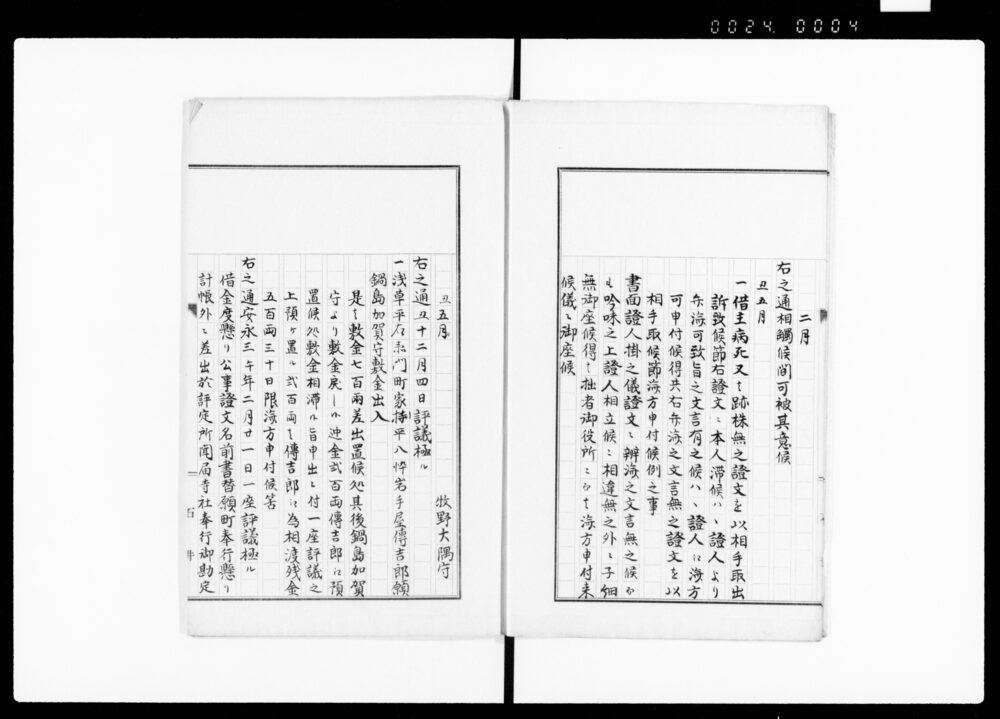 0024. 0004
二月
右之通相觸候間可被其意候
丑五月
一借主病死又ハ跡株無之證文を以相手取出
訴致候節右證文ニ本人滞候ハヽ證人より
弁済可致旨之文言有之候ハヽ證人江済方
可申付候得共右弁済之文言無之證文を以
相手取候節済方申付候例之事
書面證人掛之儀證文ニ辨済之文言無之候而
も吟味之上證人相立候ニ相違無之外ニ子細
無御座候得ハ拙者御役所ニ而ハ済方申付来
候儀ニ御座候
丑五月
牧野大隅守
右之通丑十二月四日評議極ル
一浅草平右衛門町家持平八悴岩手屋傳吉郎願
鍋島加賀守敷金出入
是ハ敷金七百両差出置候処其後鍋島加賀
守より敷金戻し候迚金弐百両傳吉郎江預
置候処敷金相滞候旨申出候ニ付一座評議之
上預ケ置候弐百両ハ傳吉郎江為相渡残金
五百両三十日限済方申付候筈
右之通安永三午年二月廿一日一座評議極ル
借金度懸り公事證文名前書替願町奉行懸り
計帳外ニ差出於評定所聞届寺社奉行御勘定